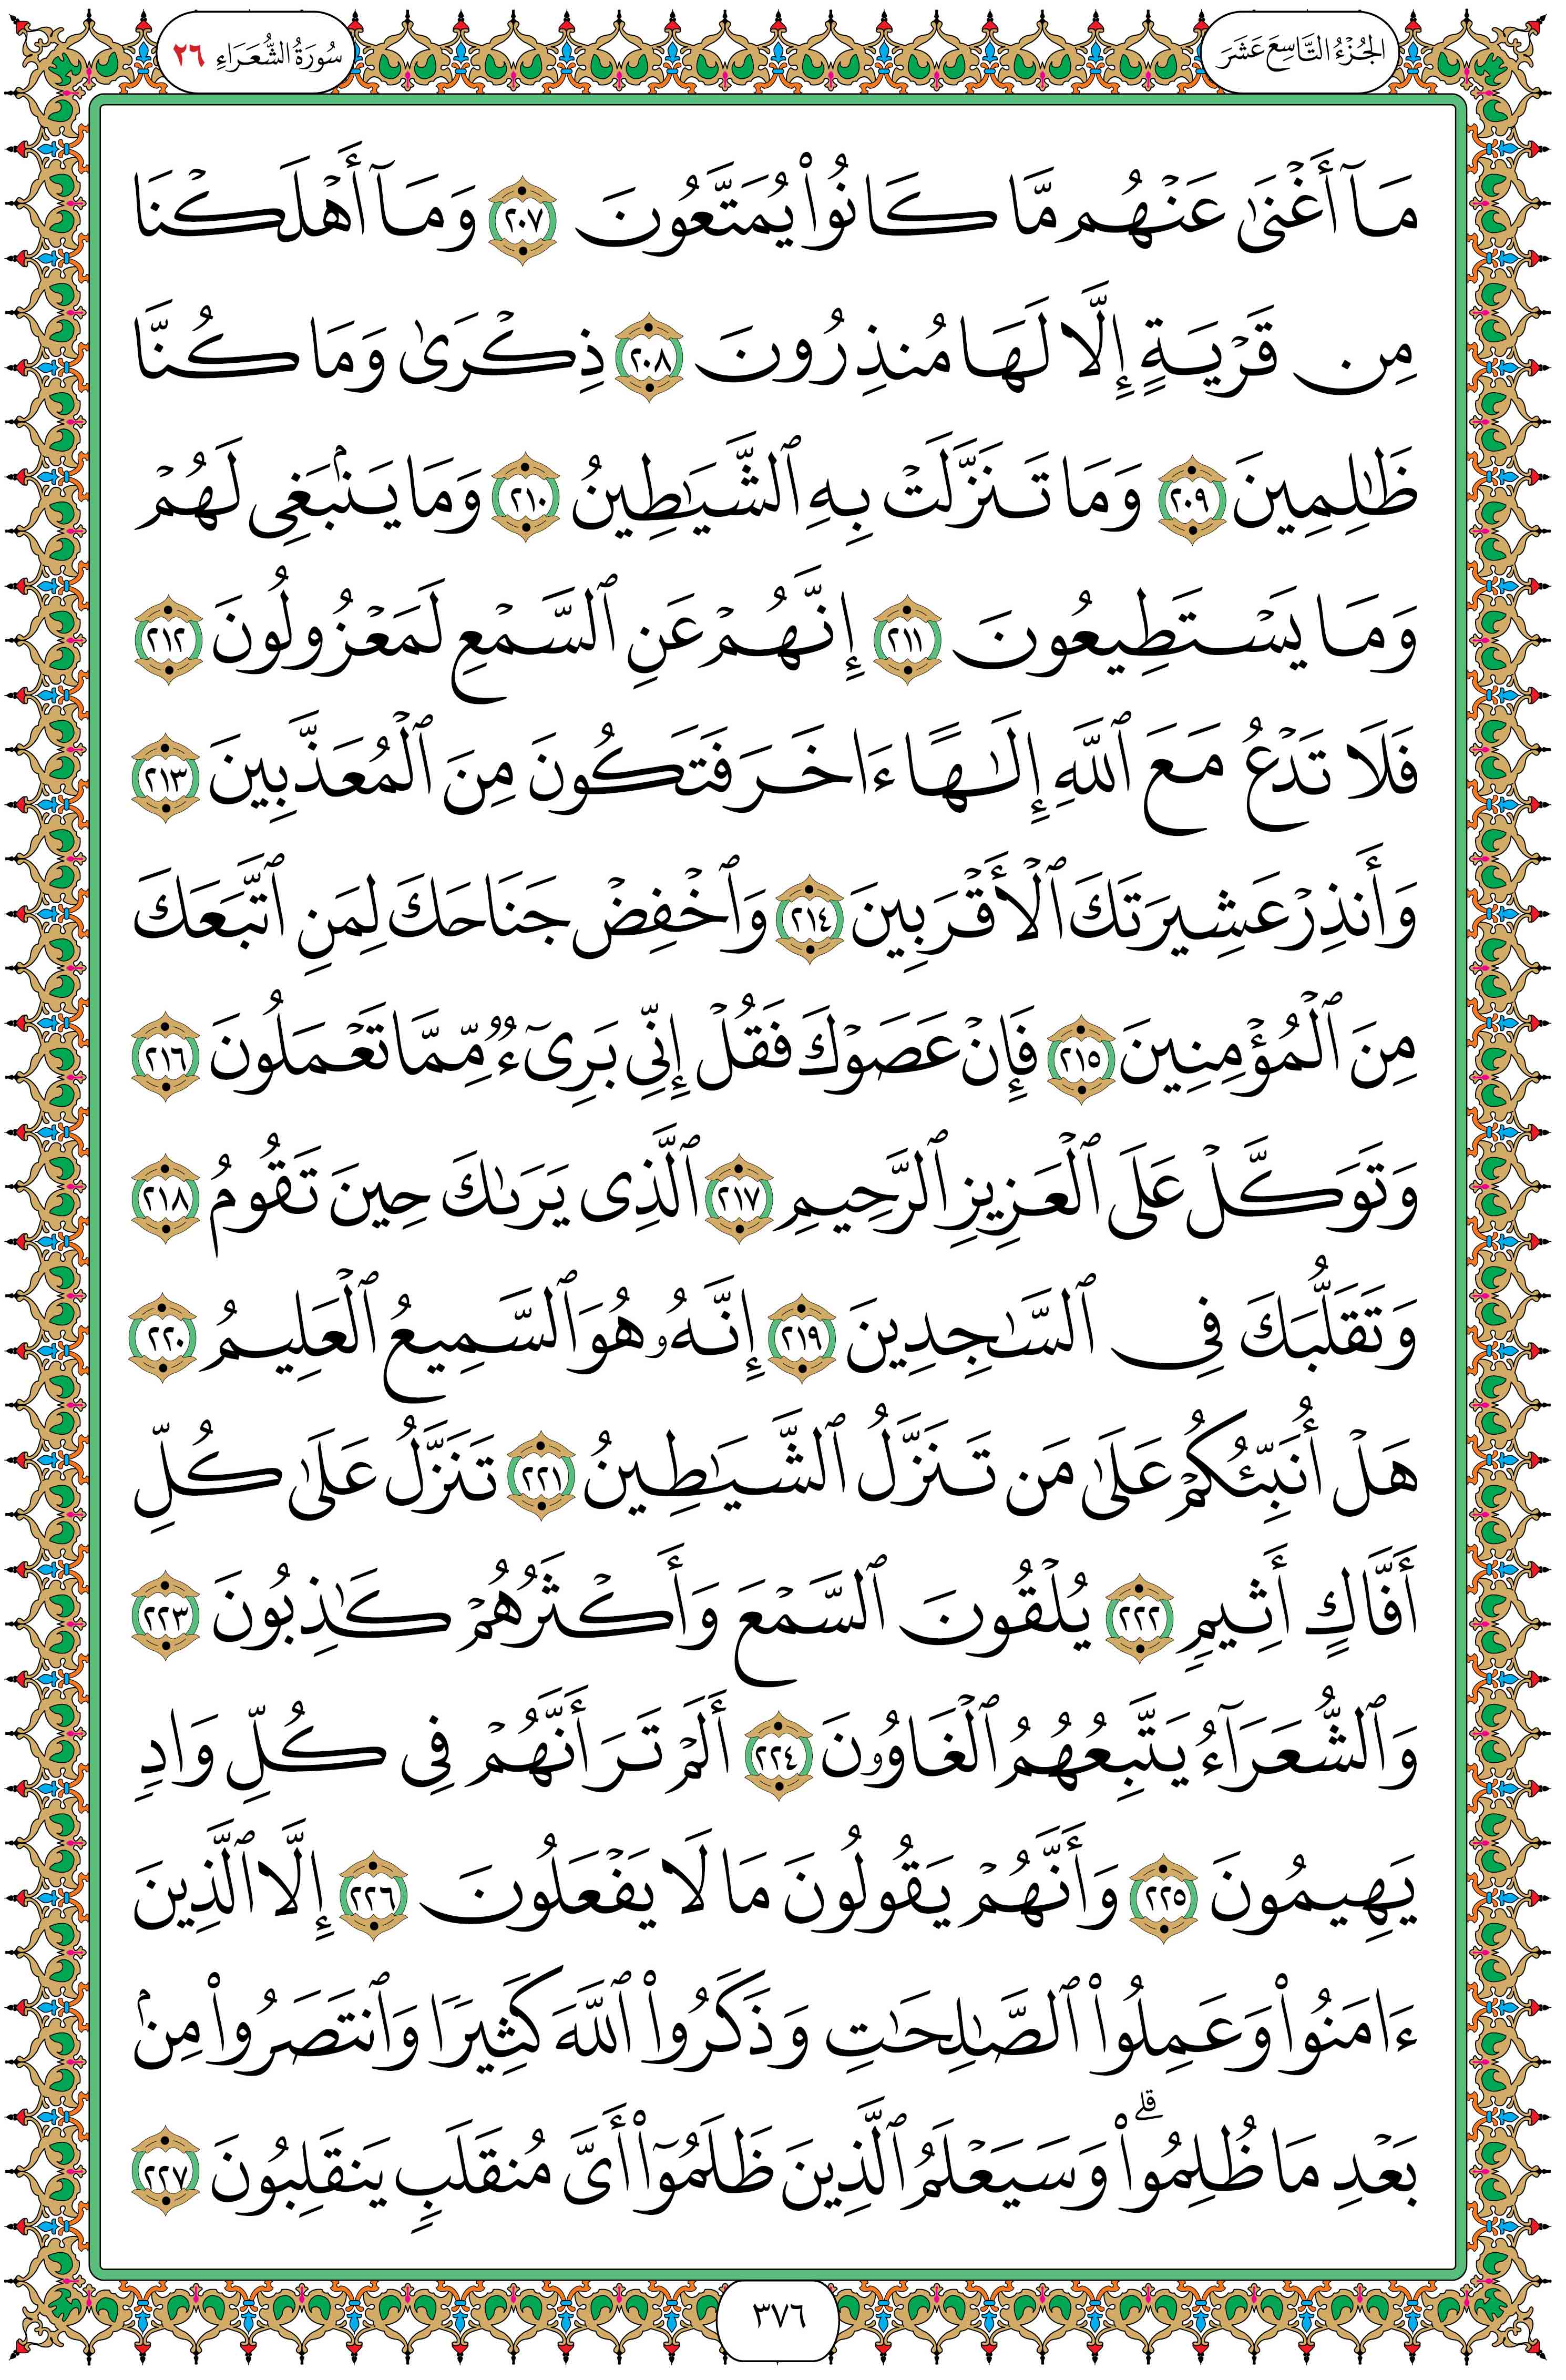 سُورَةُ الشُّعَرَاءِ ٢٦
الجُزْءُ التَّاسِعَ عَشَرَ
مَآ أَغْنَىٰ عَنْهُم مَّا كَانُوا۟ يُمَتَّعُونَ ٢٠٧ وَمَآ أَهْلَكْنَا
مِن قَرْيَةٍ إِلَّا لَهَا مُنذِرُونَ ٢٠٨ ذِكْرَىٰ وَمَا كُنَّا
ظَٰلِمِينَ ٢٠٩ وَمَا تَنَزَّلَتْ بِهِ ٱلشَّيَٰطِينُ ٢١٠ وَمَا يَنۢبَغِى لَهُمْ
وَمَا يَسْتَطِيعُونَ ٢١١ إِنَّهُمْ عَنِ ٱلسَّمْعِ لَمَعْزُولُونَ ٢١٢
فَلَا تَدْعُ مَعَ ٱللَّهِ إِلَٰهًا ءَاخَرَ فَتَكُونَ مِنَ ٱلْمُعَذَّبِينَ ٢١٣
وَأَنذِرْ عَشِيرَتَكَ ٱلْأَقْرَبِينَ ٢١٤ وَٱخْفِضْ جَنَاحَكَ لِمَنِ ٱتَّبَعَكَ
مِنَ ٱلْمُؤْمِنِينَ ٢١٥ فَإِنْ عَصَوْكَ فَقُلْ إِنِّى بَرِىٓءٌ مِّمَّا تَعْمَلُونَ ٢١٦
وَتَوَكَّلْ عَلَى ٱلْعَزِيزِ ٱلرَّحِيمِ ٢١٧ ٱلَّذِى يَرَىٰكَ حِينَ تَقُومُ ٢١٨
وَتَقَلُّبَكَ فِى ٱلسَّٰجِدِينَ ٢١٩ إِنَّهُۥ هُوَ ٱلسَّمِيعُ ٱلْعَلِيمُ ٢٢٠
هَلْ أُنَبِّئُكُمْ عَلَىٰ مَن تَنَزَّلُ ٱلشَّيَٰطِينُ ٢٢١ تَنَزَّلُ عَلَىٰ كُلِّ
أَفَّاكٍ أَثِيمٍ ٢٢٢ يُلْقُونَ ٱلسَّمْعَ وَأَكْثَرُهُمْ كَٰذِبُونَ ٢٢٣
وَٱلشُّعَرَآءُ يَتَّبِعُهُمُ ٱلْغَاوُۥنَ ٢٢٤ أَلَمْ تَرَ أَنَّهُمْ فِى كُلِّ وَادٍ
يَهِيمُونَ ٢٢٥ وَأَنَّهُمْ يَقُولُونَ مَا لَا يَفْعَلُونَ ٢٢٦ إِلَّا ٱلَّذِينَ
ءَامَنُوا۟ وَعَمِلُوا۟ ٱلصَّٰلِحَٰتِ وَذَكَرُوا۟ ٱللَّهَ كَثِيرًا وَٱنتَصَرُوا۟ مِنۢ
بَعْدِ مَا ظُلِمُوا۟ ۗ وَسَيَعْلَمُ ٱلَّذِينَ ظَلَمُوٓا۟ أَىَّ مُنقَلَبٍ يَنقَلِبُونَ ٢٢٧
٣٧٦